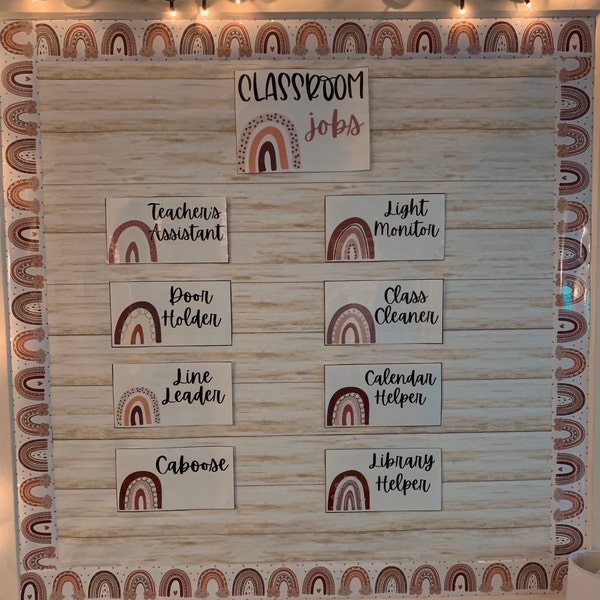 CLASSROOM
jobs
Teacher's
Assistant
Light
Monitor
Door
Holder
Class
Cleaner
Line
Leader
Calendar
Helper
Caboose
Library
Helper